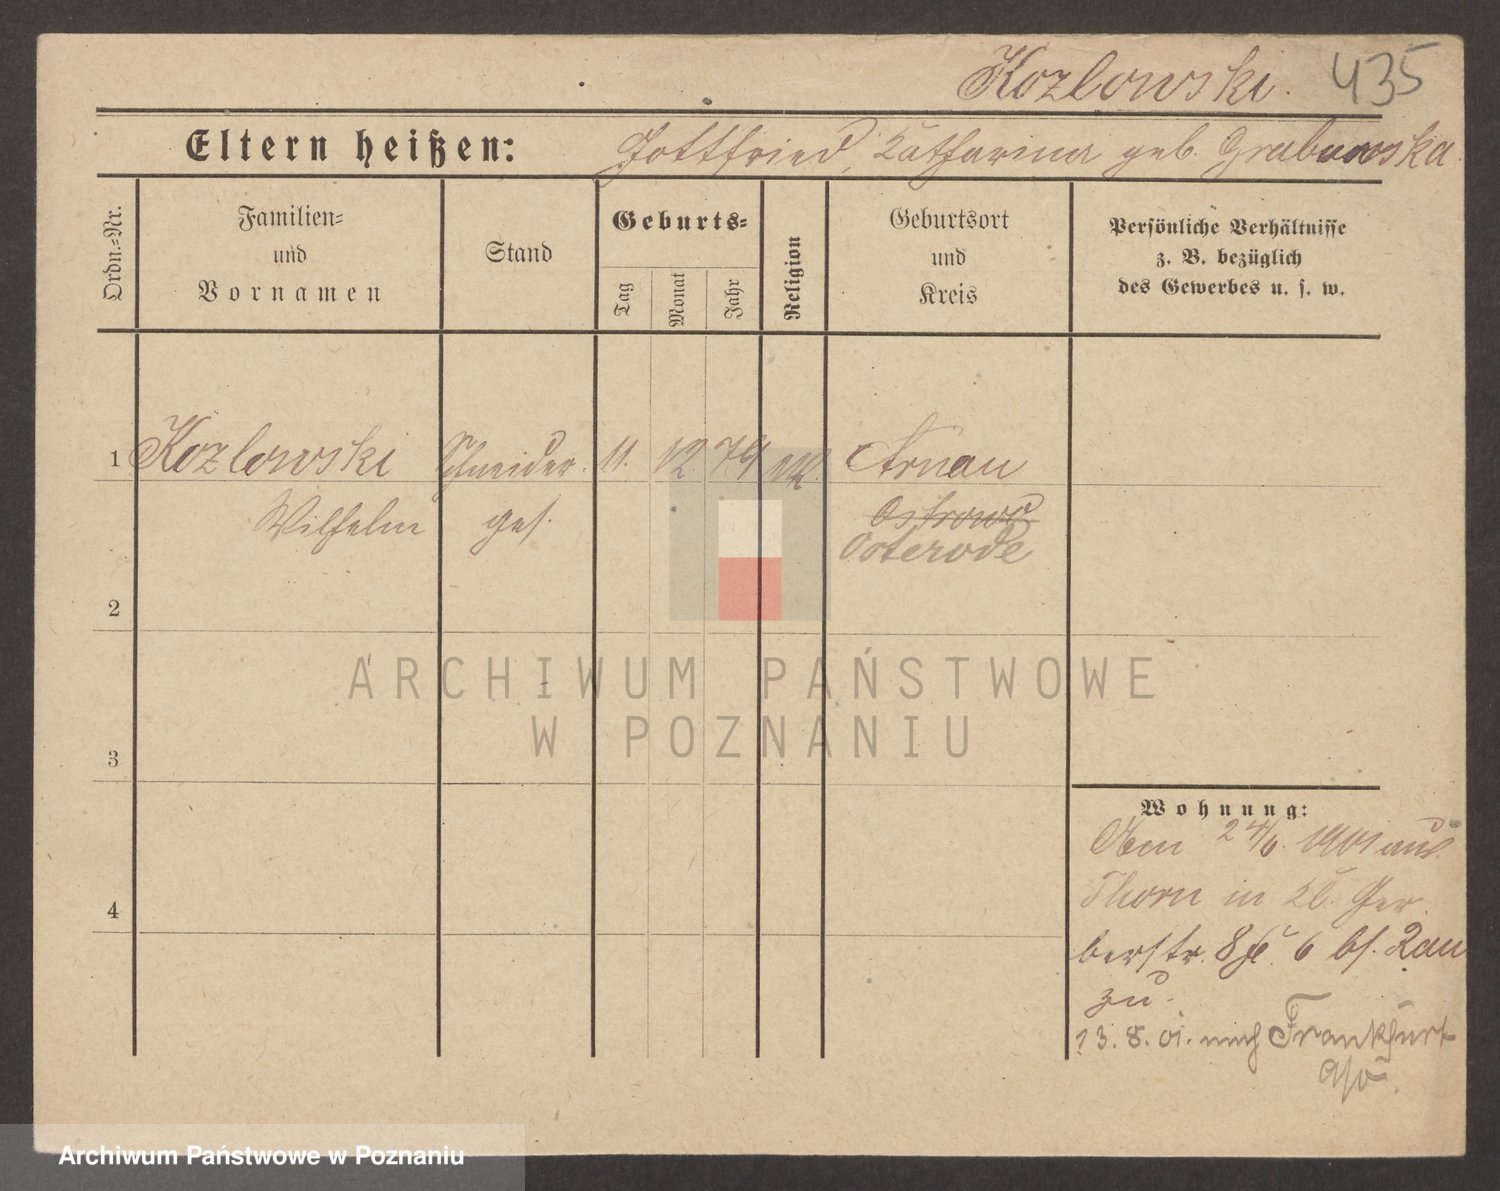 Kozlowski. 435
Eltern heißen: Gottfried, Katharina geb. Grabowska.
Ordn.-Nr.
Familien-
und
Vornamen
Stand
Geburts-
Tag
Monat
Jahr
Religion
Geburtsort
und
Kreis
Persönliche Verhältnisse
z. B. bezüglich
des Gewerbes u. s. w.
1 Kozlowski Schneider 11. 12. 79 Arnau
Wilhelm ges. Ostrowo
Osterode
2
3
4
Wohnung:
Am 24/6. 1901 aus
Thorn in Kl. Ger
berstr. 8 6 bs. Rau
zu.
13. 8. 01. nach Frankfurt
a/O.
ARCHIWUM PAŃSTWOWE
W POZNANIU
Archiwum Państwowe w Poznaniu